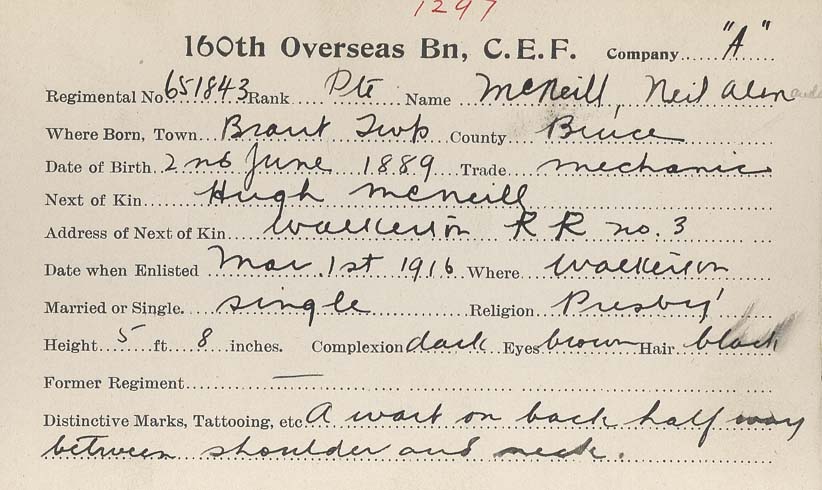 1297
160th Overseas Bn, C.E.F. Company "A"
Regimental No. 651843 Rank Pte Name McNeill, Neil Alen
Where Born, Town Brant Twp County Bruce
Date of Birth 2nd June 1889 Trade mechanic
Next of Kin Hugh McNeill
Address of Next of Kin Walkerton R R no. 3
Date when Enlisted Mar. 1st 1916 Where Walkerton
Married or Single. single Religion Presby'
Height 5 ft. 8 inches. Complexion dark Eyes brown Hair black
Former Regiment —
Distinctive Marks, Tattooing, etc A wart on back half way
between shoulder and neck.